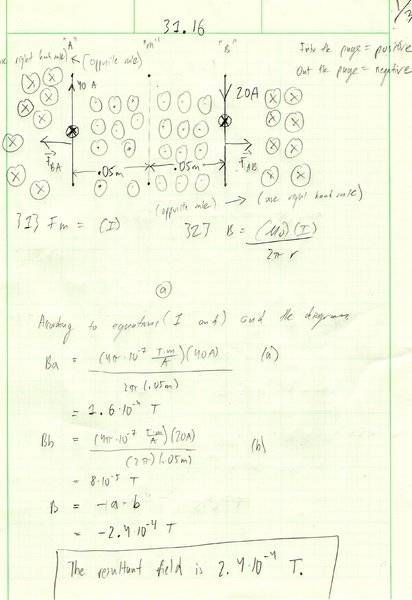 31.16
1/3
"A" (opposite rule) "m" "B"
use right hand rule)
Into the page = positive
Out the page = negative
40 A
20A
F BA
.05m .05m
F AB
(opposite rule) → (use right hand rule)
31) Fm = (I)
32) B = (μ0)(I) / 2π r
(a)
According to equations (I and) and the diagram
Ba = (4π·10⁻⁷ T·m/A)(40A) / 2π(.05m) (a)
= 1.6·10⁻⁴ T
Bb = (4π·10⁻⁷ T·m/A)(20A) / (2π)(.05m) (b)
= 8·10⁻⁵ T
B = -a-b
= -2.4·10⁻⁴ T
The resultant field is 2.4·10⁻⁴ T.